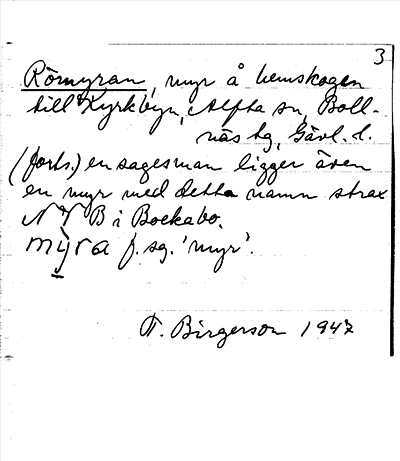 3
Römyran, myr å hemskogen
till Kyrkbyn, Alfta sn, Boll-
näs tg, Gävl. l.
(forts.) en sagesman ligger även
en myr med detta namn strax
N V B i Bockabo.
mỳra f. sg. 'myr'.
F. Birgerson 1947